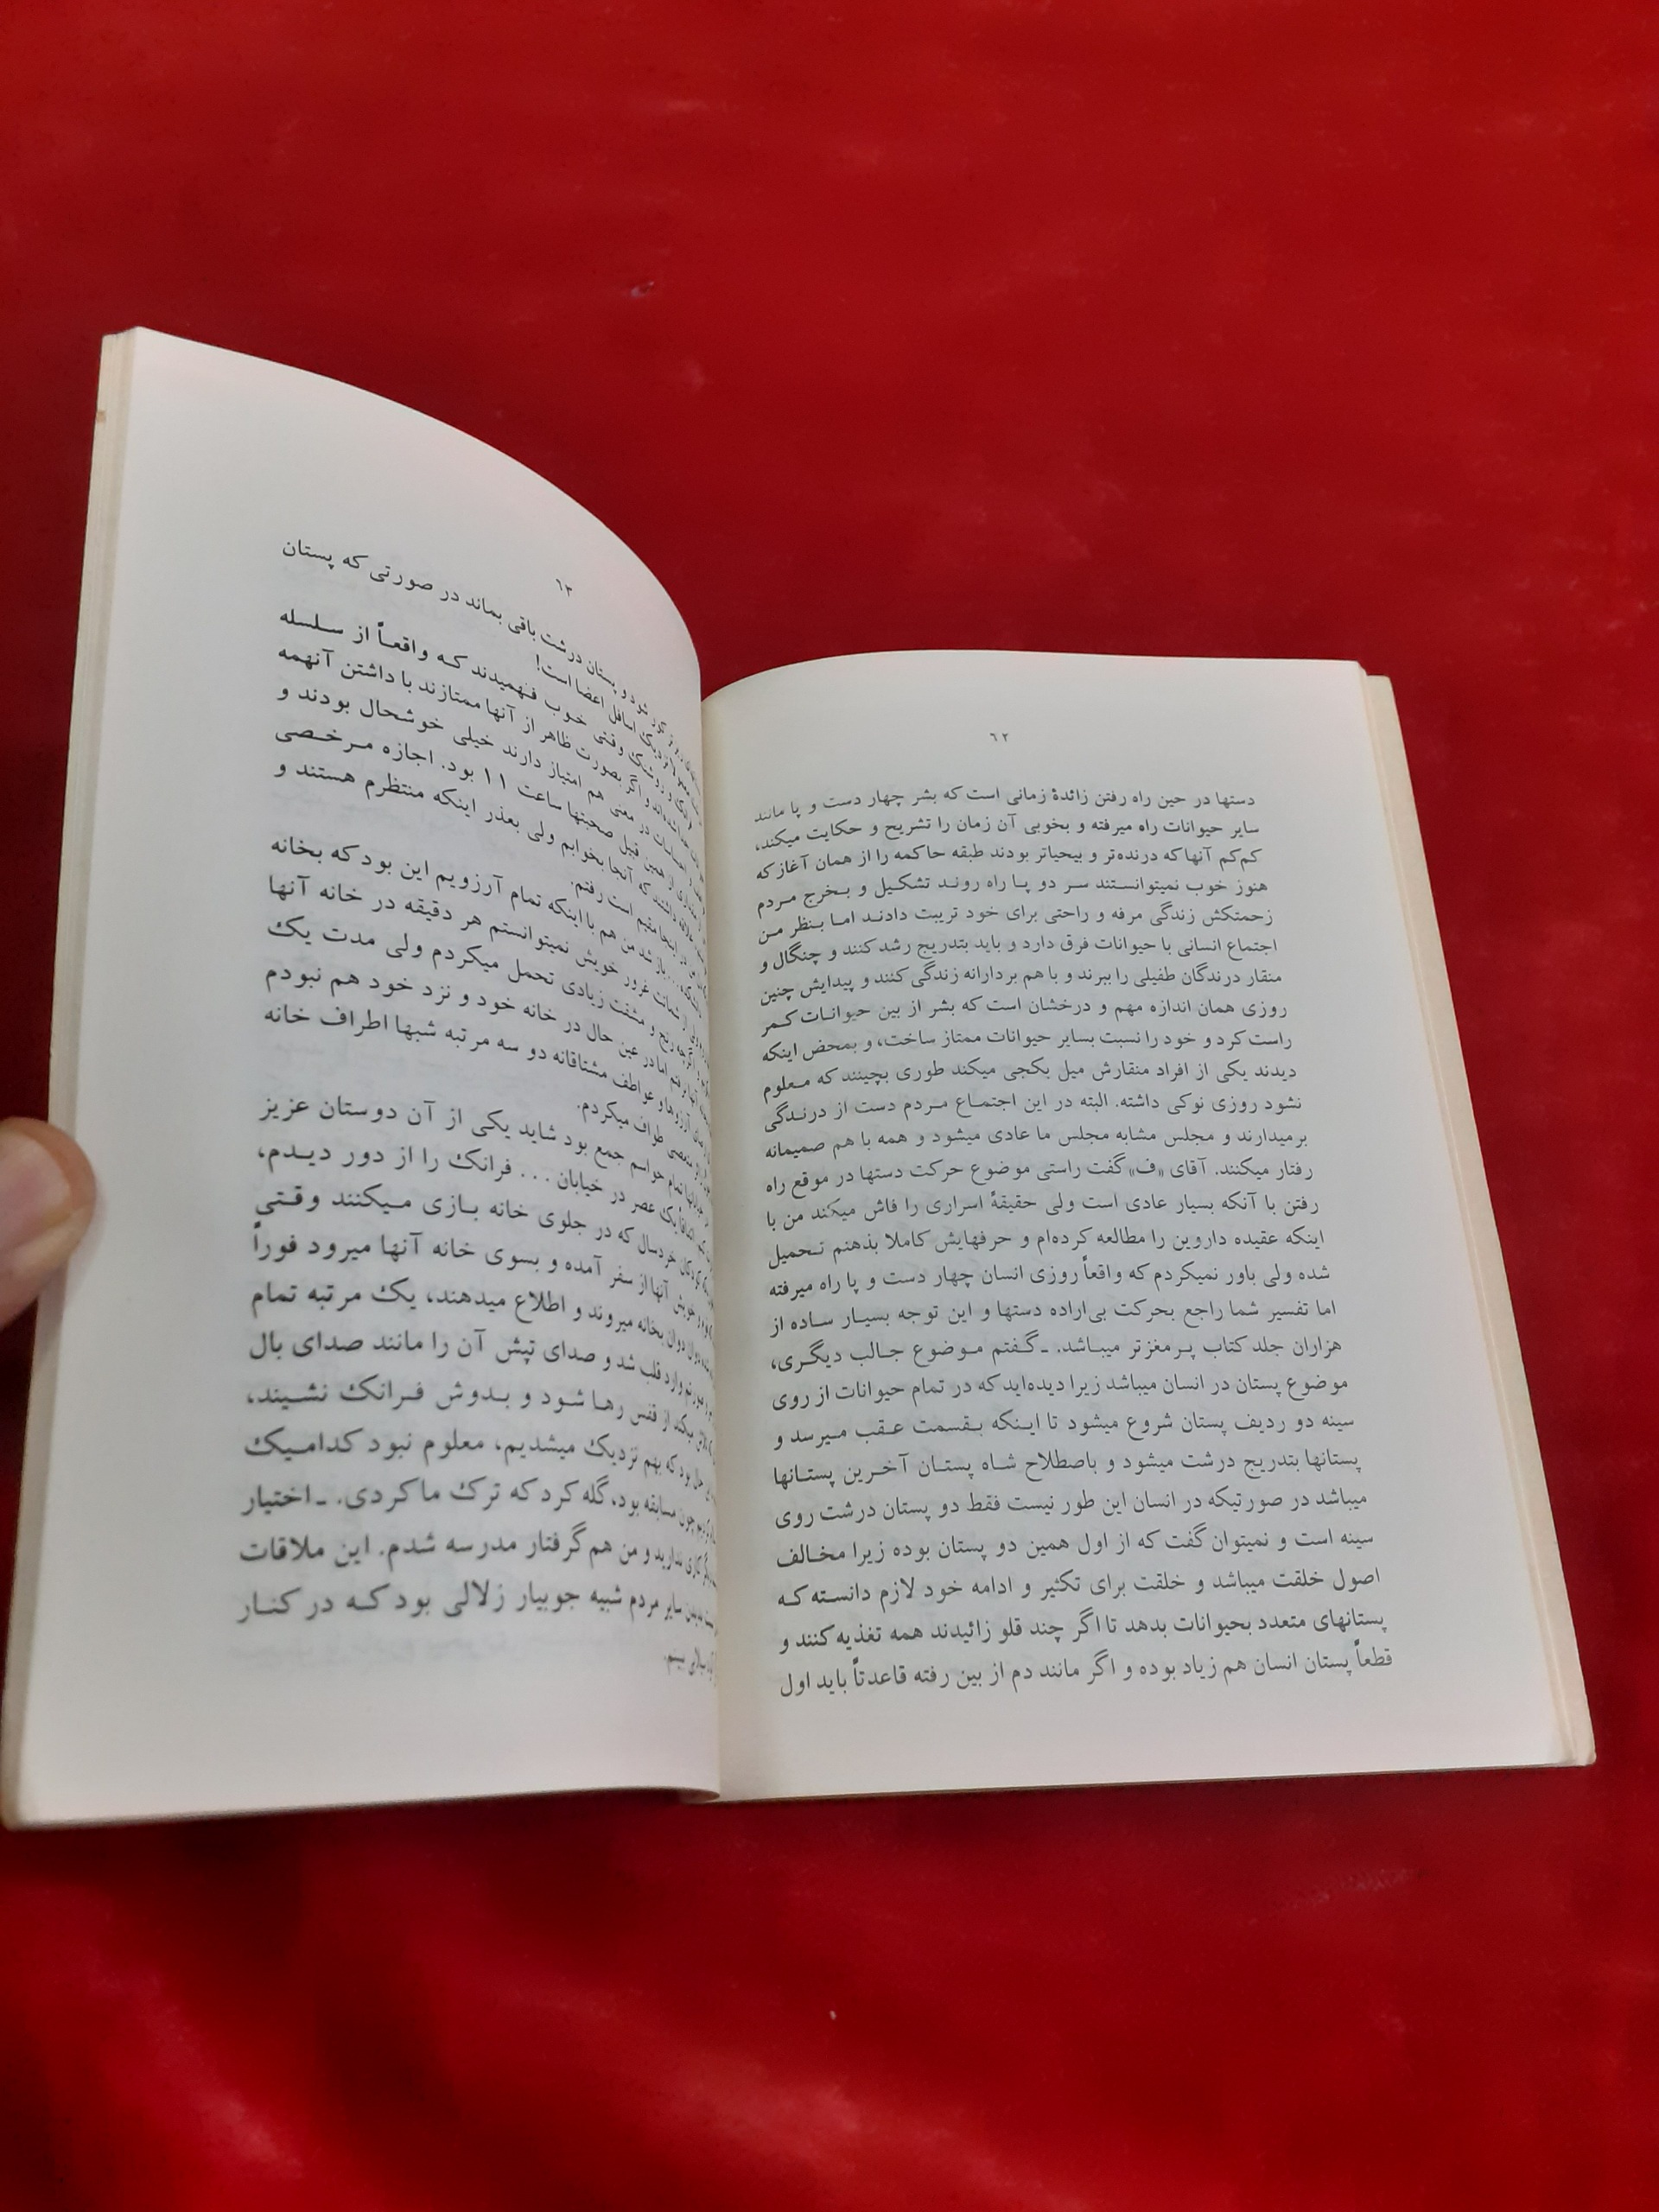 ٦٢
دستها در حین راه رفتن زائدهٔ زمانی است که بشر چهار دست و پا مانند
سایر حیوانات راه میرفته و بخوبی آن زمان را تشریح و حکایت میکند،
کم‌کم آنها که درنده‌تر و بیحیاتر بودند طبقه حاکمه را از همان آغاز که
هنوز خوب نمیتوانستند سر دو پا راه روند تشکیل و بخرج مردم
زحمتکش زندگی مرفه و راحتی برای خود تربیت دادند اما بنظر من
اجتماع انسانی با حیوانات فرق دارد و باید بتدریج رشد کنند و چنگال و
منقار درندگان طفیلی را ببرند و با هم بردارانه زندگی کنند و پیدایش چنین
روزی همان اندازه مهم و درخشان است که بشر از بین حیوانات کمر
راست کرد و خود را نسبت بسایر حیوانات ممتاز ساخت، و بمحض اینکه
دیدند یکی از افراد منقارش میل بکجی میکند طوری بچینند که معلوم
نشود روزی نوکی داشته. البته در این اجتماع مردم دست از درندگی
برمیدارند و مجلس مشابه مجلس ما عادی میشود و همه با هم صمیمانه
رفتار میکنند. آقای «ف» گفت راستی موضوع حرکت دستها در موقع راه
رفتن با آنکه بسیار عادی است ولی حقیقهٔ اسراری را فاش میکند من با
اینکه عقیده داروین را مطالعه کرده‌ام و حرفهایش کاملا بذهنم تحمیل
شده ولی باور نمیکردم که واقعاً روزی انسان چهار دست و پا راه میرفته
اما تفسیر شما راجع بحرکت بی‌اراده دستها و این توجه بسیار ساده از
هزاران جلد کتاب پرمغزتر میباشد. ـ گفتم موضوع جالب دیگری،
موضوع پستان در انسان میباشد زیرا دیده‌اید که در تمام حیوانات از روی
سینه دو ردیف پستان شروع میشود تا اینکه بقسمت عقب میرسد و
پستانها بتدریج درشت میشود و باصطلاح شاه پستان آخرین پستانها
میباشد در صورتیکه در انسان این طور نیست فقط دو پستان درشت روی
سینه است و نمیتوان گفت که از اول همین دو پستان بوده زیرا مخالف
اصول خلقت میباشد و خلقت برای تکثیر و ادامه خود لازم دانسته که
پستانهای متعدد بحیوانات بدهد تا اگر چند قلو زائیدند همه تغذیه کنند و
قطعاً پستان انسان هم زیاد بوده و اگر مانند دم از بین رفته قاعدتاً باید اول
شود و پستان درشت باقی بماند در صورتی که پستان
اسافل اعضا است!
وقتی خوب فهمیدند که واقعاً از سلسله
اگر بصورت ظاهر از آنها ممتازند با داشتن آنهمه
در معنی هم امتیاز دارند خیلی خوشحال بودند و
از همین قبیل صحبتها ساعت ۱۱ بود. اجازه مرخصی
داشتند که آنجا بخوابم ولی بعذر اینکه منتظرم هستند و
مقیم است رفتم.
باز شد من هم با اینکه تمام آرزویم این بود که بخانه
غرور خویش نمیتوانستم هر دقیقه در خانه آنها
رنج و مشقت زیادی تحمل میکردم ولی مدت یک
اما در عین حال در خانه خود و نزد خود هم نبودم
آرزوها و عواطف مشتاقانه دو سه مرتبه شبها اطراف خانه
طواف میکردم.
تمام حواسم جمع بود شاید یکی از آن دوستان عزیز
یک عصر در خیابان ... فرانک را از دور دیدم،
کودکان خردسال که در جلوی خانه بازی میکنند وقتی
خویش آنها از سفر آمده و بسوی خانه آنها میرود فوراً
دوان دوان بخانه میروند و اطلاع میدهند، یک مرتبه تمام
وارد قلب شد و صدای تپش آن را مانند صدای بال
میکند از قفس رها شود و بدوش فرانک نشیند،
بود که بهم نزدیک میشدیم، معلوم نبود کدامیک
چون مسابقه بود، گله کرد که ترک ما کردی. ـ اختیار
ندارید و من هم گرفتار مدرسه شدم. این ملاقات
سایر مردم شبیه جویبار زلالی بود که در کنار